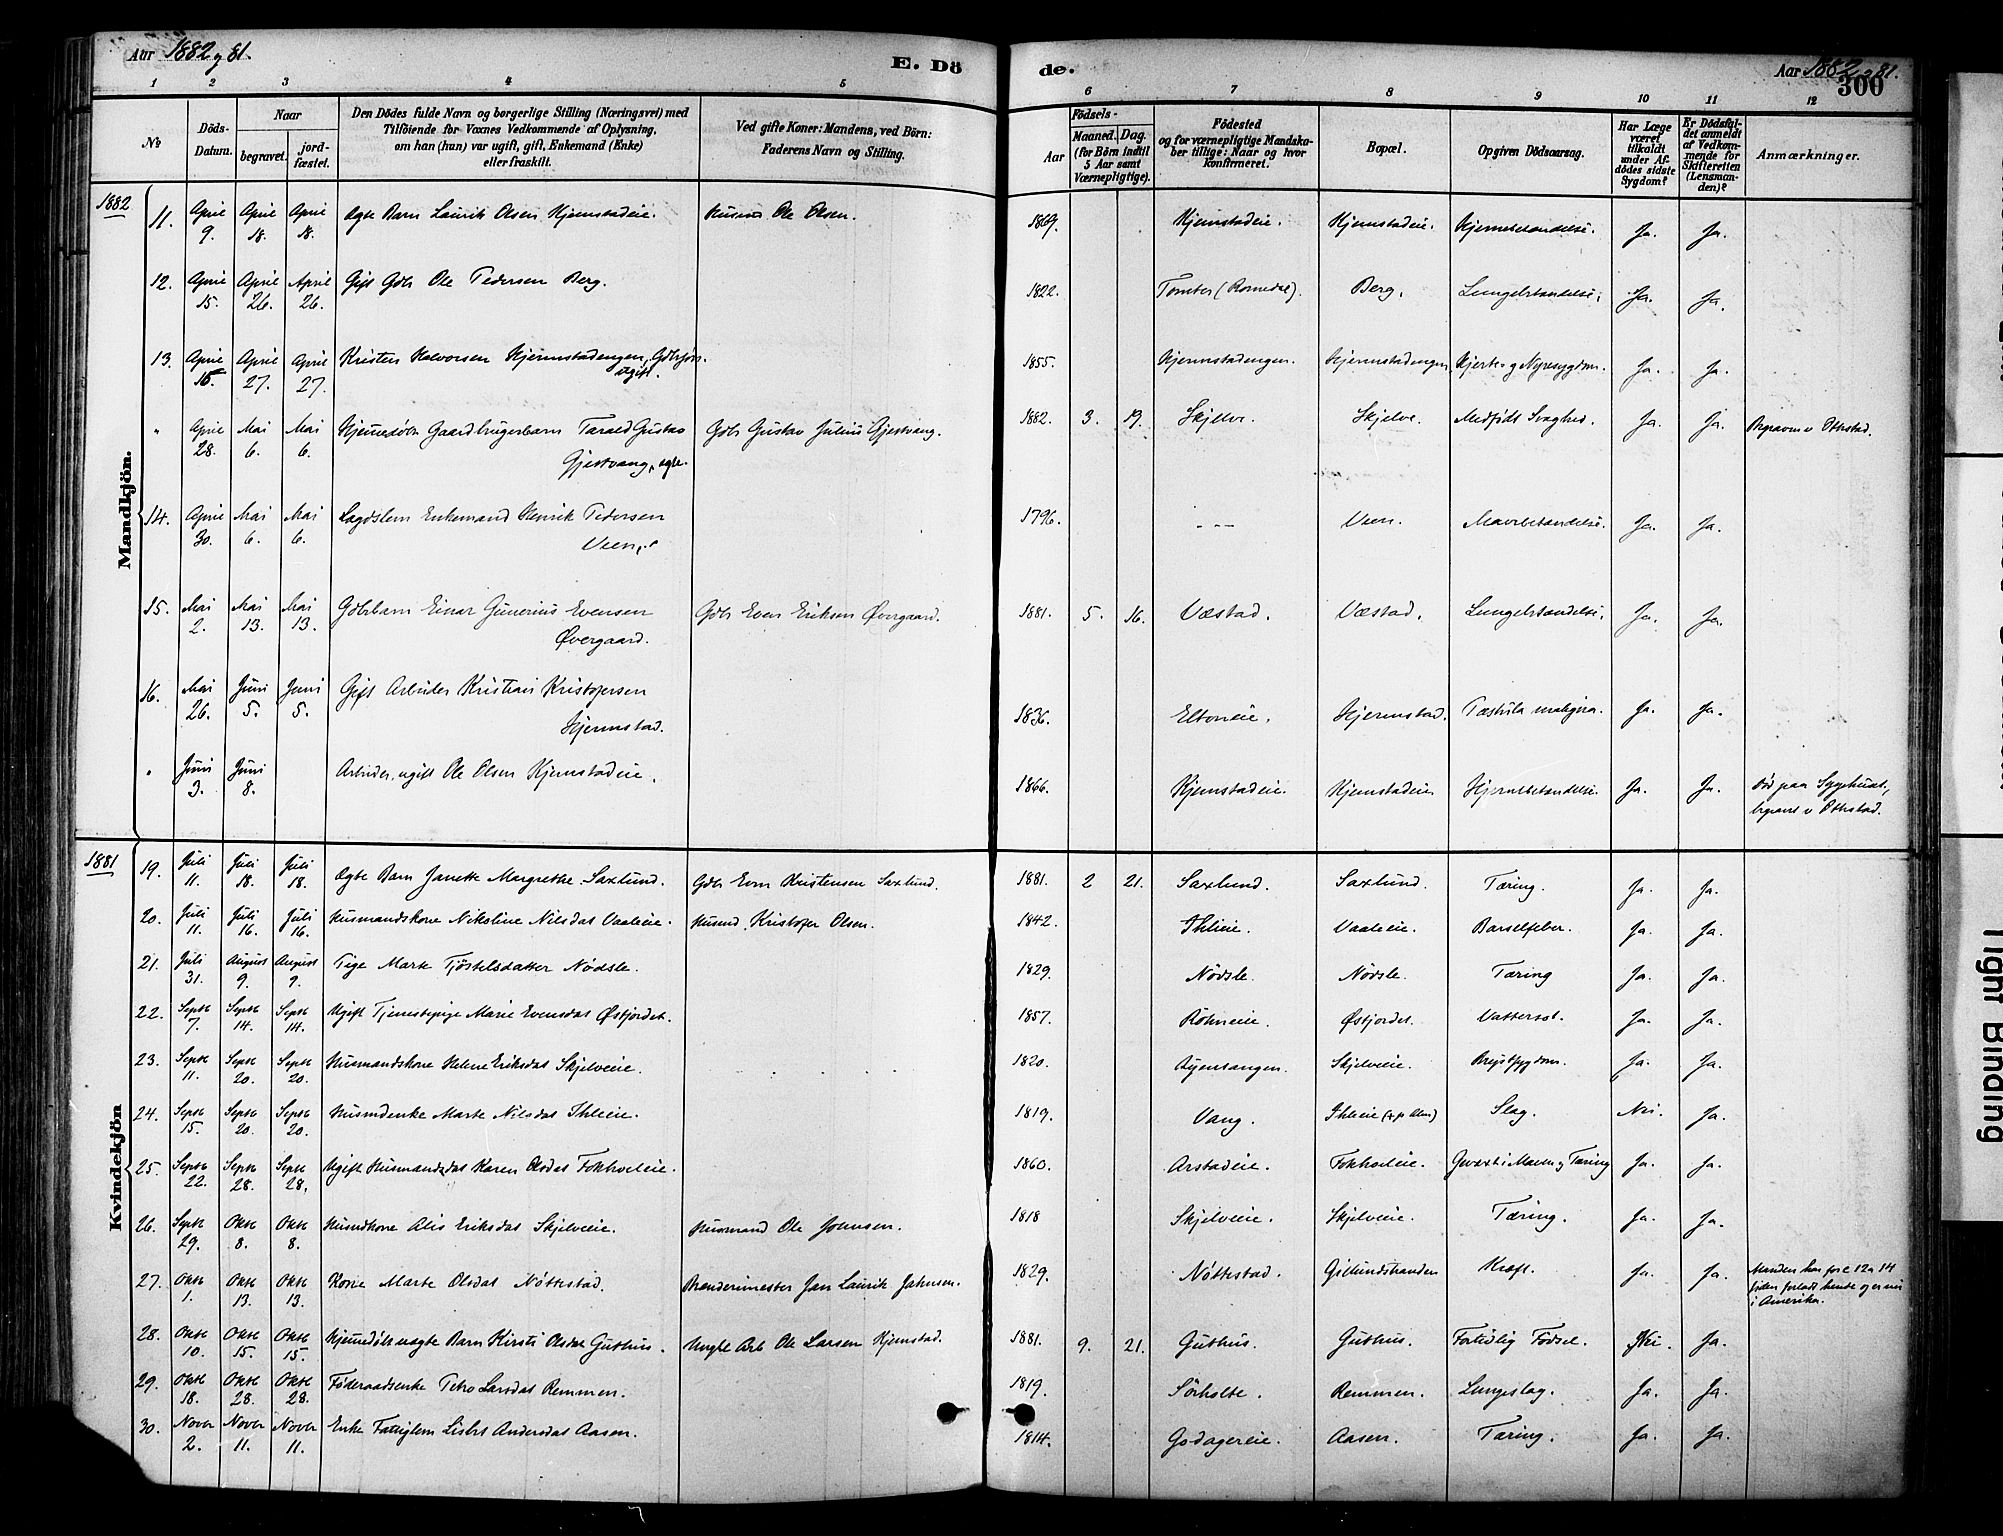 Aar 1882 & 81.
E. Dö
de.
Aar 1882 & 81.
300
1 2 3 4 5 6 7 8 9 10 11 12
No
Döds-Datum.
Naar
begravet.
jordfæstet.
Den Dödes fulde Navn og borgerlige Stilling (Næringsvei) med
Tilföiende for Voxnes Vedkommende af Oplysning,
om han (hun) var ugift, gift, Enkemand (Enke)
eller fraskilt.
Ved gifte Koner: Mandens, ved Börn:
Faderens Navn og Stilling.
Födsels-
Aar
Maaned. Dag.
(for Börn indtil
5 Aar samt
Værnepligtige).
Födested
og for værnepligtige Mandska-
ber tillige: Naar og hvor
konfirmeret.
Bopæl.
Opgiven Dödsaarsag.
Har Læge
været
tilkaldt
under Af-
dödes sidste
Sygdom?
Er Dödsfal-
det anmeldt
af Vedkom-
mende for
Skifteretten
(Lensman-
den)?
Anmærkninger.
Mandkjön.
1882
11. April 9. April 18. April 18. Ægte Barn Laurits Olsen Hjemstadeie. Husm Ole Olsen. 1869. Hjemstadeie. Hjemstadeie. Hjernebetændelse. Ja. Ja.
12. April 15. April 26. April 26. Gift Gbr Ole Pedersen Berg. 1822. Tomter (Romedal). Berg. Lungebetændelse. Ja. Ja.
13. April 15. April 27. April 27. Kristen Halvorsen Hjermstadengen, ugift. 1855. Hjermstadengen. Hjermstadengen Hjerte- og Nyresygdom. Ja. Ja.
" April 28. Mai 6. Mai 6. Hjemmedøbt Gaardbrugerbarn Tarald Gustav
Gjestvang, ægte. Gbr Gustav Julius Gjestvang. 1882. 3. 19. Skjelve. Skjelve. Medfödt Svaghed. Ja. Ja. Begraven v Ottestad.
14. April 30. Mai 6. Mai 6. Lægdslem Enkemand Henrik Pedersen
Veen. 1796. - - - Veen. Mavebetændelse. Ja. Ja.
15. Mai 2. Mai 13. Mai 13. Gbrbarn Einar Gunerius Evensen
Øvergaard. Gbr Even Eriksen Øvergaard. 1881. 5. 16. Væstad. Væstad. Lungebetændelse. Ja. Ja.
16. Mai 26. Juni 5. Juni 5. Gift Arbeider Kristian Kristofersen
Hjermstad. 1836. Eltoneie. Hjermstad. Pustula maligna. Ja. Ja.
" Juni 3. Juni 8. Arbeider, ugift Ole Olsen Hjemstadeie. 1866. Hjemstadeie. Hjemstadeie Hjernebetændelse. Ja. Ja. Død paa Sygehuset,
begravet v Ottestad.
Kvindekjön
1881
19. Juli 11. Juli 18. Juli 18. Ægte Barn Janette Margrethe Saxlund. Gbr Even Kristensen Saxlund. 1881. 2 21. Saxlund. Saxlund. Tæring. Ja. Ja.
20. Juli 11. Juli 16. Juli 16. Husmandskone Nikoline Nilsdat Vaaleie. Husmd. Kristofer Olsen. 1842. Ihleie. Vaaleie. Barselfeber. Ja. Ja.
21. Juli 31. August 9. August 9. Pige Marte Tjöstelsdatter Nödsle. 1829. Nödsle. Nödsle. Tæring Ja. Ja.
22. Septb 7. Septb 14. Septb 14. Ugift Tjenestepige Marie Evensdat Østjordet. 1857. Rohneie. Østjordet. Vattersot. Ja. Ja.
23. Septb 11. Septb 20. Septb 20. Husmandskone Helene Eriksdat Skjelveie. 1820. Skjelveie. Brystsygdom. Ja. Ja.
24. Septb 15. Septb 20. Septb 20. Husmdenke Marte Nilsdat Ihleie. 1819. Vang. Ihleie Slag. Nei. Ja.
25. Septb 22. Septb 28. Septb 28. Ugift Husmandsdat Karen Olsdat Fokholeie. 1860. Arstadeie. Fokholeie. Gvæxt i Maven og Tæring Ja. Ja.
26. Septb 29. Oktb 8. Oktb 8. Husmdkone Alis Eriksdat Skjelveie. Husmand Ole Johnsen. 1818 Skjelveie. Skjelveie. Tæring. Ja. Ja.
27. Oktb 1. Oktb 13. Oktb 13. Kone Marte Olsdat Nöttestad. Brænderimester Jan Laurik Jahnsen. 1829. Nöttestad. Gillundstranden Kræft. Ja. Ja. Manden har for 12 a 14
siden forladt hende og er nu
i Amerika.
28. Oktb 10. Oktb 15. Oktb 15. Hjemmedöbt uægte Barn Kirsti Olsdat Guthus. Ungk Arb Ole Larsen Hjemstad. 1881. 9. 21. Guthus. Guthus. Fortidlig Födsel. Nei. Ja.
29. Oktb 18. Oktb 28. Oktb 28. Föderaadsenke Petro Larsdat Remmen. 1819. Sörholte. Remmen. Lungeslag. Ja. Ja.
30. Novbr 2. Novbr 11. Novbr 11. Enke Fattiglem Lisbet Andersdat Aasen. 1814. Godagereie. Aasen. Tæring. Ja. Ja.
Tight Binding